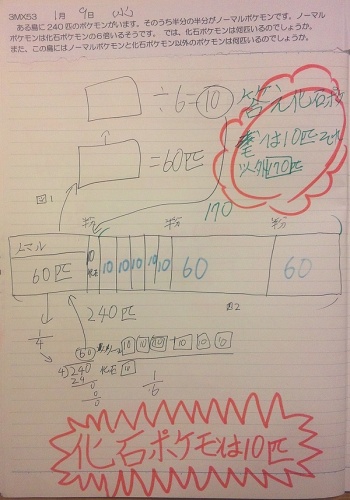 3MX53 1月 9日 (水)
ある島に240匹のポケモンがいます。そのうち半分の半分がノーマルポケモンです。ノーマル
ポケモンは化石ポケモンの6倍いるそうです。 では、化石ポケモンは何匹いるのでしょうか。
また、この島にはノーマルポケモンと化石ポケモン以外のポケモンは何匹いるのでしょうか。
÷6=10
答え化石ポケ
モンは10匹それ
以外170匹
=60匹
図1
170
半分 半分 半分
ノーマル
60匹
10 化石 10 10 10 10 10 60 60
240匹
図2
1/4
60
4)240
24
0
0
0
ノーマル 10 10 10 10 10 10
化石 10
1/6
化石ポケモンは10匹